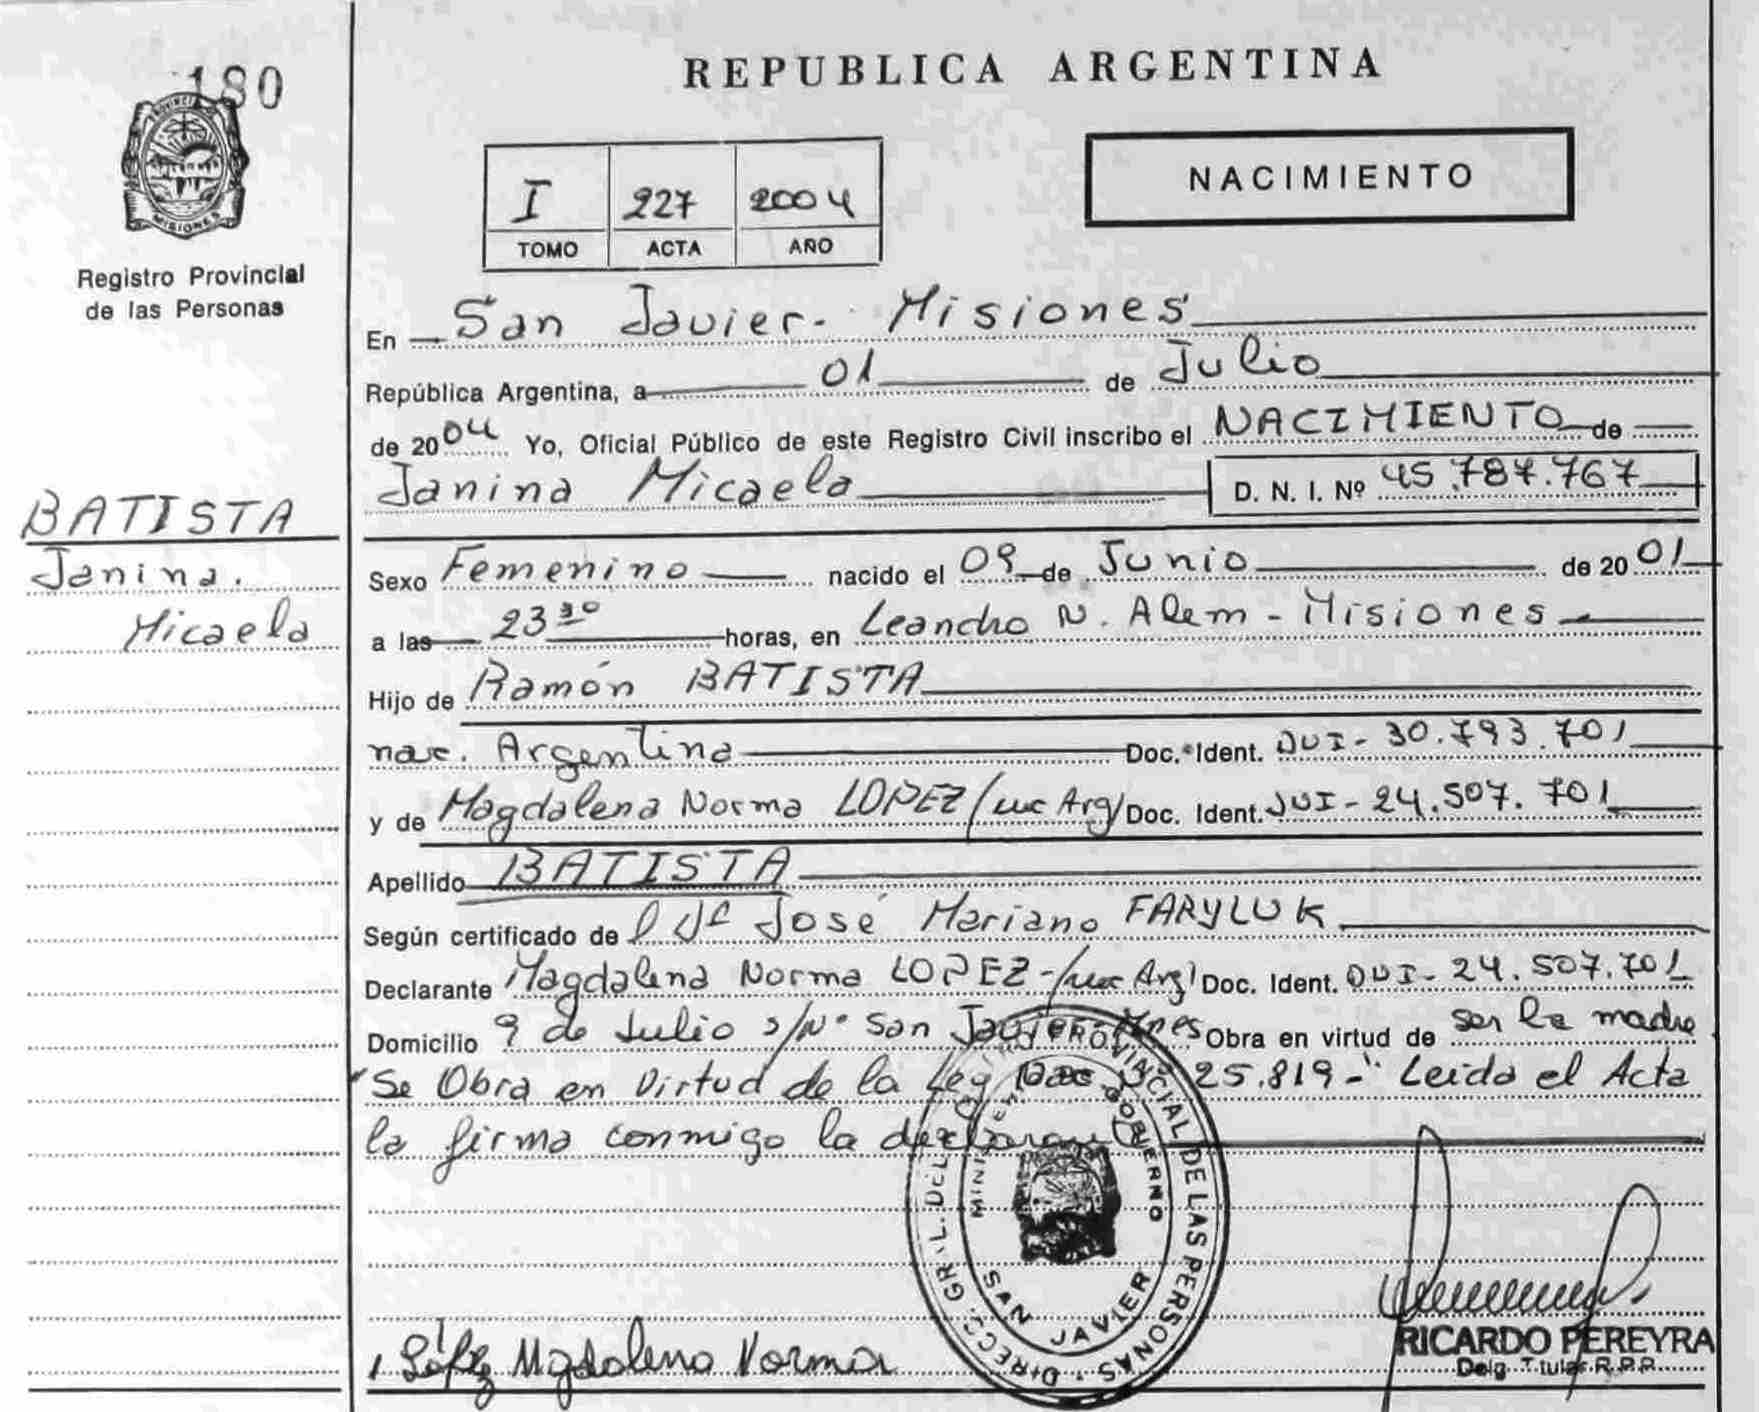 180
REPUBLICA ARGENTINA
NACIMIENTO
I 227 2004
TOMO ACTA AÑO
MISIONES
Registro Provincial
de las Personas
En San Javier - Misiones
República Argentina, a 01 de Julio
de 2004 Yo, Oficial Público de este Registro Civil inscribo el NACIMIENTO de
Janina Micaela D. N. I. Nº 45.787.767
BATISTA
Janina.
Micaela
Sexo Femenino nacido el 09 de Junio de 2001
a las 23 30 horas, en Leandro N. Alem - Misiones
Hijo de Ramón BATISTA
nac. Argentina Doc. Ident. DUI - 30.793.701
y de Magdalena Norma LOPEZ /nac Arg/ Doc. Ident. DUI - 24.507.701
Apellido BATISTA
Según certificado de José Mariano FARYLUK
Declarante Magdalena Norma LOPEZ - /nac Arg/ Doc. Ident. DUI - 24.507.701
Domicilio 9 de Julio s/Nº San Javier Mnes Obra en virtud de ser la madre
"Se Obra en Virtud de la Ley Nac Nº 25.819 -" Leida el Acta
la firma conmigo la declarante
DIRECC. GRAL. DEL PROVINCIAL DE LAS PERSONAS
GOBIERNO
SAN JAVIER
López Magdalena Norma
RICARDO PEREYRA
Deleg. Titular R.P.P.